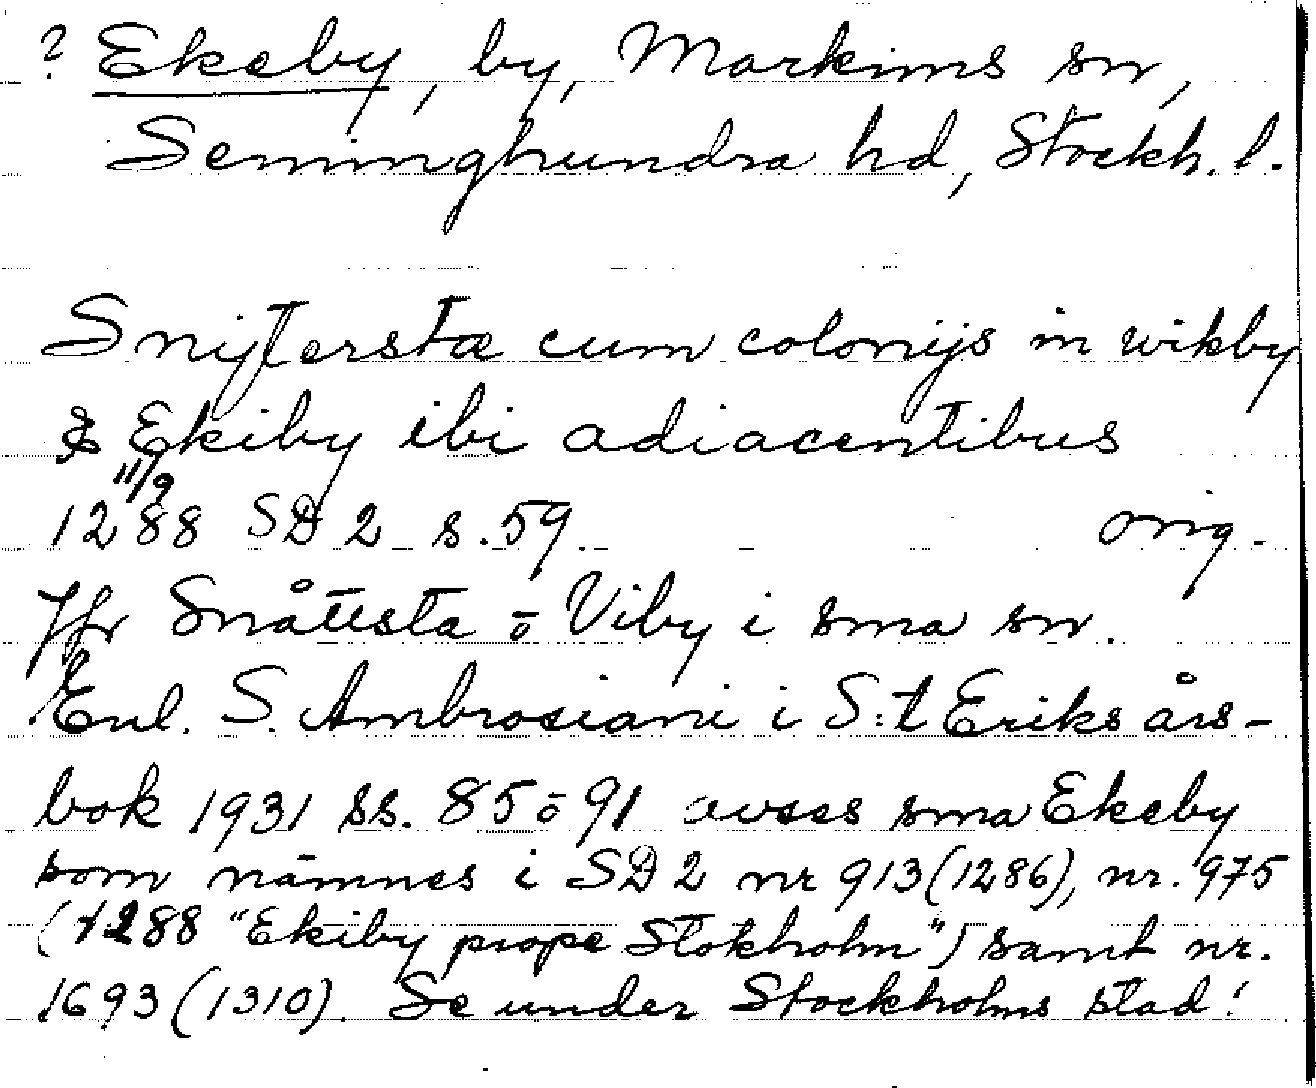 ? Ekeby, by, Markims sn,
Seminghundra hd, Stockh. l.
Snijterstæ cum colonijs in wikby
& Ekiby ibi adiacentibus
11/9
1288 SD 2 s. 59. orig.
Jfr Snåttsta o Viby i sma sn.
Enl. S. Ambrosiani i S:t Eriks års-
bok 1931 ss. 85 o 91 avses sma Ekeby
som nämnes i SD 2 nr 913 (1286), nr. 975
(1288 "Ekiby prope Stokholm") samt nr.
1693 (1310). Se under Stockholms stad!